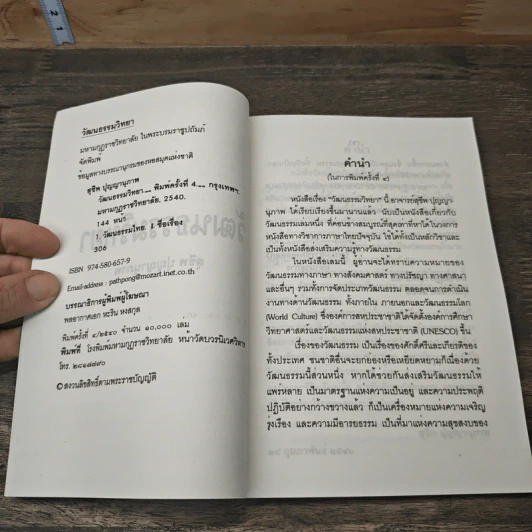 วัฒนธรรมวิทยา
มหามกุฏราชวิทยาลัย ในพระบรมราชูปถัมภ์
จัดพิมพ์
ข้อมูลทางบรรณานุกรมของหอสมุดแห่งชาติ
สุชีพ ปุญญานุภาพ
วัฒนธรรมวิทยา.-- พิมพ์ครั้งที่ 4.-- กรุงเทพฯ:
มหามกุฏราชวิทยาลัย. 2540.
144 หน้า
1. วัฒนธรรมไทย. I. ชื่อเรื่อง
306
ISBN 974-580-657-9
Email-address : pathpong@mozart.inet.co.th
บรรณาธิการผู้พิมพ์ผู้โฆษณา
พลอากาศเอก หะริน หงสกุล
พิมพ์ครั้งที่ ๔/๒๕๔๐ จำนวน ๑๐,๐๐๐ เล่ม
พิมพ์ที่ โรงพิมพ์มหามกุฏราชวิทยาลัย หน้าวัดบวรนิเวศวิหาร
โทร. ๒๘๑๘๘๙๐
© สงวนลิขสิทธิ์ตามพระราชบัญญัติ
คำนำ
(ในการพิมพ์ครั้งที่ ๔)
หนังสือเรื่อง "วัฒนธรรมวิทยา" นี้ อาจารย์สุชีพ ปุญญา-
นุภาพ ได้เรียบเรียงขึ้นมานานแล้ว นับเป็นหนังสือเกี่ยวกับ
วัฒนธรรมเล่มหนึ่ง ที่ค่อนข้างสมบูรณ์ที่สุดเท่าที่หาได้ในวงการ
หนังสือทางวิชาการภาษาไทยปัจจุบัน ใช้ได้ทั้งเป็นหลักวิชาและ
เป็นทั้งหนังสือส่งเสริมความรู้ทางวัฒนธรรม
ในหนังสือเล่มนี้ ผู้อ่านจะได้ทราบความหมายของ
วัฒนธรรมทางภาษา ทางสังคมศาสตร์ ทางปรัชญา ทางศาสนา
และอื่นๆ รวมทั้งการจัดประเภทวัฒนธรรม ตลอดจนการดำเนิน
งานทางด้านวัฒนธรรม ทั้งภายใน ภายนอกและวัฒนธรรมโลก
(World Culture) ซึ่งองค์การสหประชาชาติได้จัดตั้งองค์การศึกษา
วิทยาศาสตร์และวัฒนธรรมแห่งสหประชาชาติ (UNESCO) ขึ้น
เรื่องของวัฒนธรรม เป็นเรื่องของศักดิ์ศรีและเกียรติของ
ทั้งประเทศ ชนชาติอื่นจะยกย่องหรือเหยียดหยามก็เนื่องด้วย
วัฒนธรรมนี้ส่วนหนึ่ง หากได้ช่วยกันส่งเสริมวัฒนธรรมให้
แพร่หลาย เป็นมาตรฐานแห่งความเป็นอยู่ และความประพฤติ
ปฏิบัติอย่างกว้างขวางแล้ว ก็เป็นเครื่องหมายแห่งความเจริญ
รุ่งเรือง และความมีอารยธรรม เป็นที่มาแห่งความสุขสงบของ